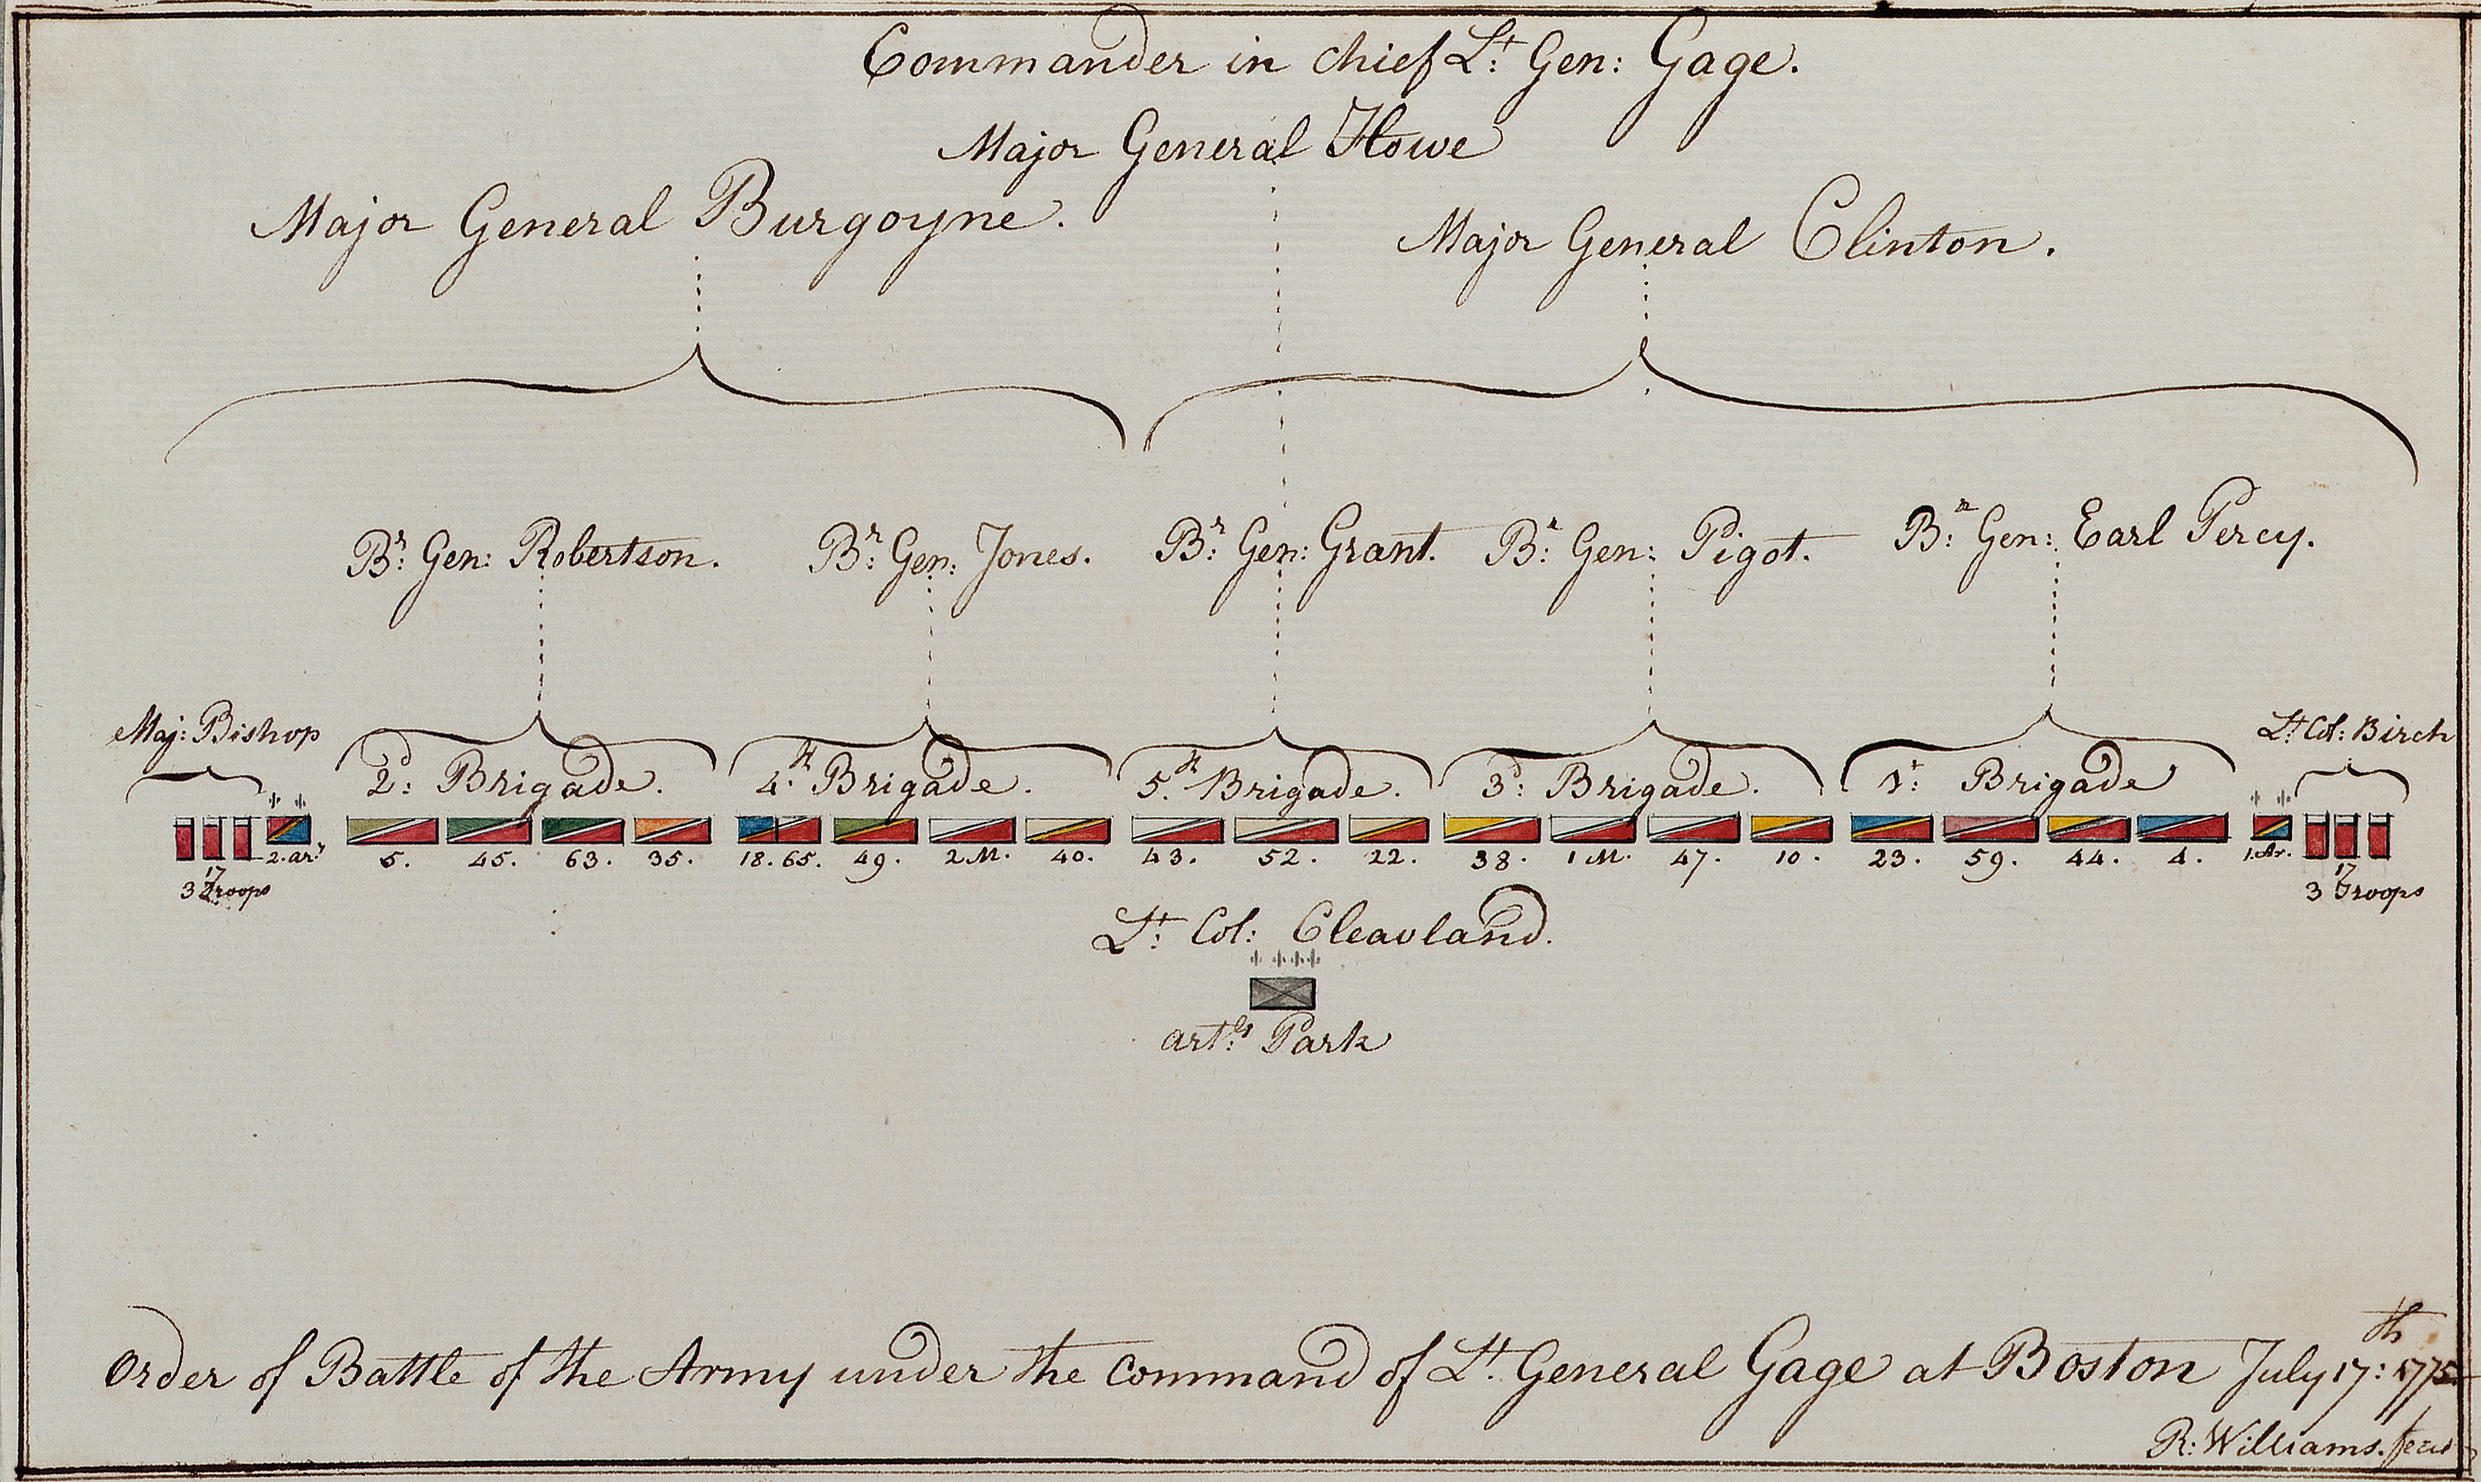 Commander in chief Lt: Gen: Gage.
Major General Howe
Major General Burgoyne.
Major General Clinton.
Br: Gen: Robertson.
Br: Gen: Jones.
Br: Gen: Grant.
Br: Gen: Pigot.
Br: Gen: Earl Percy.
Maj: Bishop
2d: Brigade.
4.th Brigade.
5.th Brigade.
3d: Brigade.
1t: Brigade
Lt: Col: Birch
2. ar:y 5. 45. 63. 35. 18. 65. 49. 2 M. 40. 43. 52. 22. 38. 1 M. 47. 10. 23. 59. 44. 4. 1. Ar.
17
3 Troops
17
3 Troops
Lt: Col: Cleavland.
art:ly Park
Order of Battle of the Army under the command of Lt. General Gage at Boston July 17:th 1775.
R: Williams. fecit